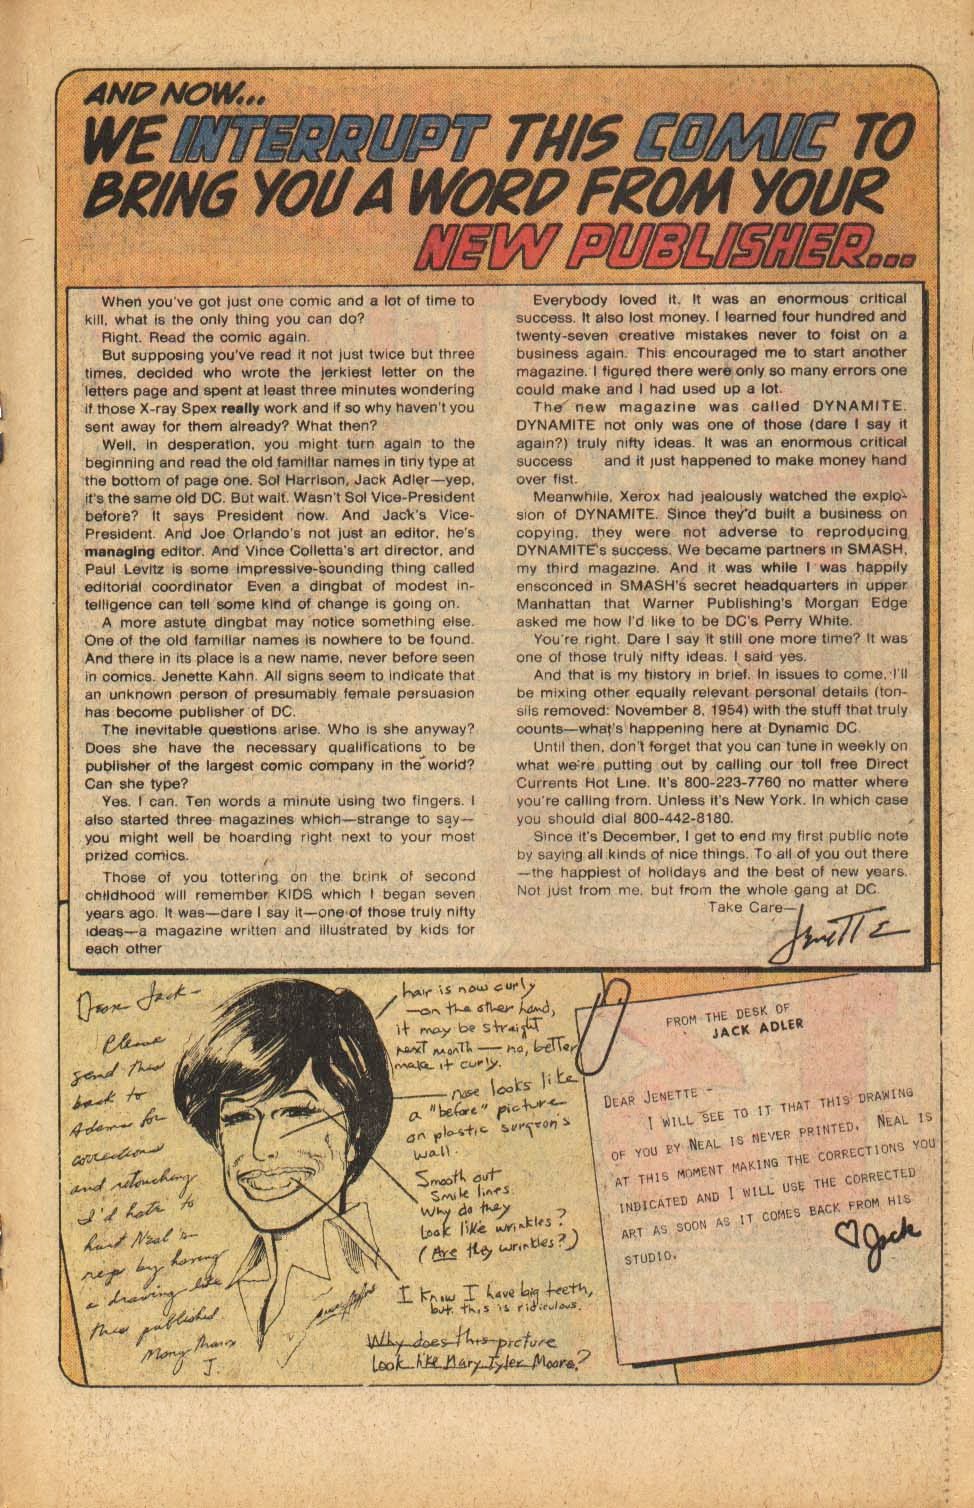 AND NOW...
WE INTERRUPT THIS COMIC TO
BRING YOU A WORD FROM YOUR
NEW PUBLISHER...
When you've got just one comic and a lot of time to
kill, what is the only thing you can do?
Right. Read the comic again.
But supposing you've read it not just twice but three
times, decided who wrote the jerkiest letter on the
letters page and spent at least three minutes wondering
if those X-ray Spex really work and if so why haven't you
sent away for them already? What then?
Well, in desperation, you might turn again to the
beginning and read the old familiar names in tiny type at
the bottom of page one. Sol Harrison, Jack Adler—yep,
it's the same old DC. But wait. Wasn't Sol Vice-President
before? It says President now. And Jack's Vice-
President. And Joe Orlando's not just an editor, he's
managing editor. And Vince Colletta's art director, and
Paul Levitz is some impressive-sounding thing called
editorial coordinator Even a dingbat of modest in-
telligence can tell some kind of change is going on.
A more astute dingbat may notice something else.
One of the old familiar names is nowhere to be found.
And there in its place is a new name, never before seen
in comics. Jenette Kahn. All signs seem to indicate that
an unknown person of presumably female persuasion
has become publisher of DC.
The inevitable questions arise. Who is she anyway?
Does she have the necessary qualifications to be
publisher of the largest comic company in the world?
Can she type?
Yes. I can. Ten words a minute using two fingers. I
also started three magazines which—strange to say—
you might well be hoarding right next to your most
prized comics.
Those of you tottering on the brink of second
childhood will remember KIDS which I began seven
years ago. It was—dare I say it—one of those truly nifty
ideas—a magazine written and illustrated by kids for
each other
Everybody loved it. It was an enormous critical
success. It also lost money. I learned four hundred and
twenty-seven creative mistakes never to foist on a
business again. This encouraged me to start another
magazine. I figured there were only so many errors one
could make and I had used up a lot.
The new magazine was called DYNAMITE.
DYNAMITE not only was one of those (dare I say it
again?) truly nifty ideas. It was an enormous critical
success and it just happened to make money hand
over fist.
Meanwhile, Xerox had jealously watched the explo-
sion of DYNAMITE. Since they'd built a business on
copying, they were not adverse to reproducing
DYNAMITE's success. We became partners in SMASH,
my third magazine. And it was while I was happily
ensconced in SMASH's secret headquarters in upper
Manhattan that Warner Publishing's Morgan Edge
asked me how I'd like to be DC's Perry White.
You're right. Dare I say it still one more time? It was
one of those truly nifty ideas. I said yes.
And that is my history in brief. In issues to come, I'll
be mixing other equally relevant personal details (ton-
sils removed: November 8, 1954) with the stuff that truly
counts—what's happening here at Dynamic DC
Until then, don't forget that you can tune in weekly on
what we're putting out by calling our toll free Direct
Currents Hot Line. It's 800-223-7760 no matter where
you're calling from. Unless it's New York. In which case
you should dial 800-442-8180.
Since it's December, I get to end my first public note
by saying all kinds of nice things. To all of you out there
—the happiest of holidays and the best of new years.
Not just from me, but from the whole gang at DC.
Take Care—
Jenette
Dear Jack—
Please
send this
back to
Adams for
corrections
and retouching
I'd hate to
hurt Neal's
rep by having
a drawing like
this published.
Many thanx
J.
hair is now curly
—on the other hand,
it may be straight
next month — no, better
make it curly.
nose looks like
a "before" picture
on plastic surgeon's
wall.
Smooth out
smile lines.
Why do they
look like wrinkles?
(Are they wrinkles?)
I know I have big teeth,
but this is ridiculous.
Why does this picture
look like Mary Tyler Moore?
FROM THE DESK OF
JACK ADLER
DEAR JENETTE -
I WILL SEE TO IT THAT THIS DRAWING
OF YOU BY NEAL IS NEVER PRINTED. NEAL IS
AT THIS MOMENT MAKING THE CORRECTIONS YOU
INDICATED AND I WILL USE THE CORRECTED
ART AS SOON AS IT COMES BACK FROM HIS
STUDIO.
♡ Jack